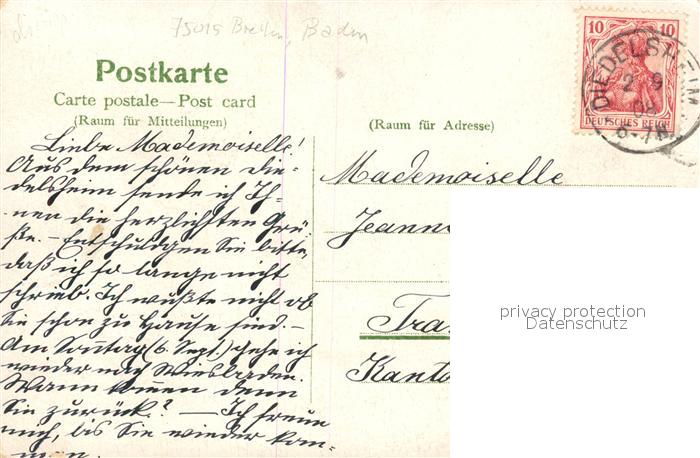 75015 Bretten, Baden
Postkarte
Carte postale—Post card
(Raum für Mitteilungen)
(Raum für Adresse)
10 10
DEUTSCHES REICH
DIEDELSHEIM
2 9
08
6-7N
Liebe Mademoiselle!
Aus dem schönen Die-
delsheim sende ich Ih-
nen die herzlichten Grü-
ße. – Entschuldgen Sie bitte,
daß ich so lange nicht
schrieb. Ich wußte nicht ob
Sie schon zu Hause sind. –
Am Sonntag (6. Sept.) gehe ich
wieder nach Wiesbaden.
Wann kommen denn
Sie zurück? — Ich freue
mich, bis Sie wieder kom-
men.
Mademoiselle
Jeann
Tra
Kanto
privacy protection
Datenschutz